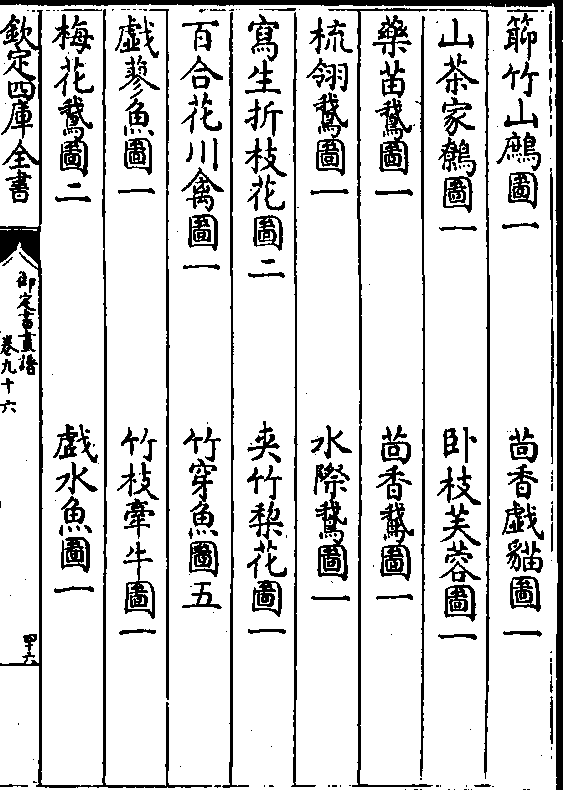 篰竹山鷓圖一　茴香戯貓圖一
山茶家鷯圖一　卧枝芙蓉圖一
藥苗鵞圖一　茴香鵞圖一
梳翎鵞圖一　水際鵞圖一
寫生折枝花圖二　夹竹梨花圖一
百合花川禽圖一　竹穿魚圖五
戯蓼魚圖一　竹枝牽牛圖一
梅花鵞圖二　戯水魚圖一
欽定四庫全書
御定書畫譜
卷九十六
四十六